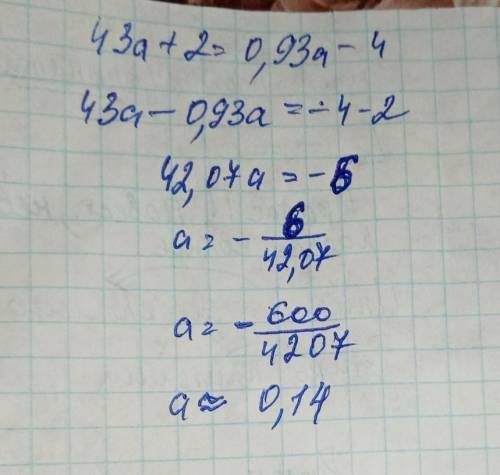 43a + 2 = 0,93a - 4
43a - 0,93a = -4 - 2
42,07a = -6
a = - 6/42,07
a = - 600/4207
a ≈ 0,14